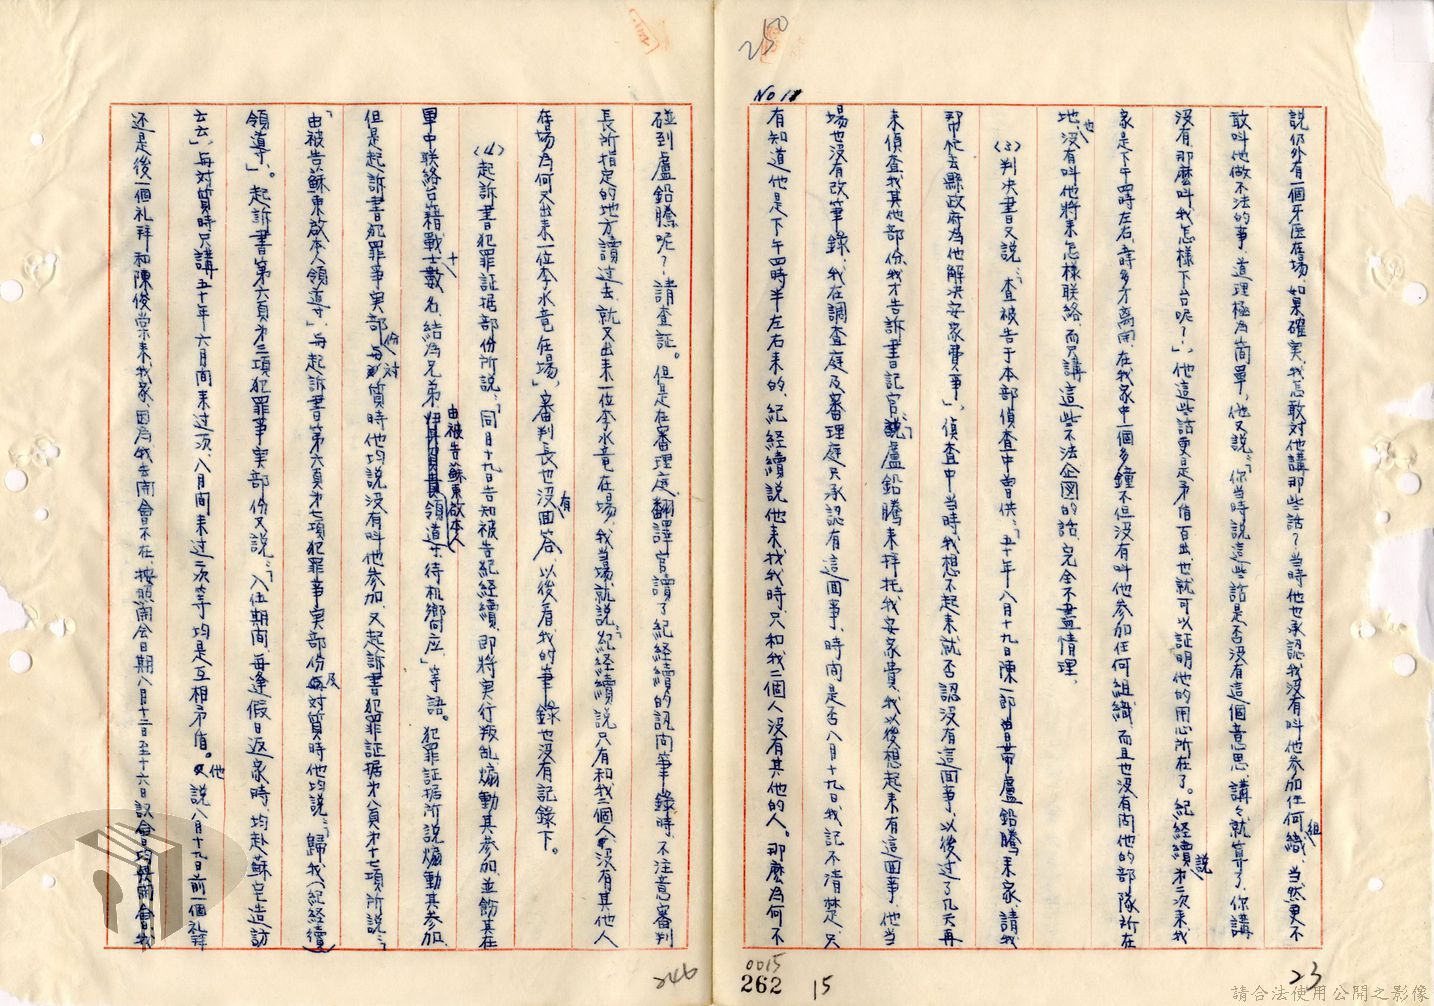 250
No 11
說仍外有一個牙医在場,如果確実,我怎敢对他講那些話?当時他也承認我沒有叫他参加任何組織,当然更不
敢叫他做不法的事,道理極為簡單,他又說:「你当時說這些話是否沒有這個意思,講々就算了,你講
沒有,那麼叫我怎樣下台呢?」,他這些話更是矛盾百出,也就可以証明他的用心所在了。紀経續說第二次来我
家是下午四時左右,談多才离開,在我家中一個多鐘,不但沒有叫他参加任何組織,而且也沒有问他的部隊所在
地,也沒有叫他將来怎樣联絡,而只講這些不法企図的話,完全不盡情理,
(3)判决書又說:「查被告于本部偵查中曾供:『五十年八月十九日陳一郎曾帶盧鉛騰来家,請我
帮他去縣政府為他解决安家費事』,偵查中当時,我想不起来就否認沒有這回事,以後过了几天再
来偵查我其他部份,我才告訴書記官說:「盧鉛騰来拜托我安家費,我以後想起来有這回事」,他当
場也沒有改筆錄,我在調查庭及審理庭只承認有這回事,時间是否八月十九日,我記不清楚,只
有知道他是下午四時半左右来的,紀経續說他来找我時,只和我二個人沒有其他的人。那麼為何不
262
0015
15
23
碰到盧鉛騰呢?請查証。但是在審理庭,翻譯官讀了紀経續的訊问筆錄時,不注意審判
長所指定的地方,讀过去,就又出来一位李水竟在場,我当場就說:「紀経續說只有和我二個人,沒有其他人
在場,為何又出来一位李水竟在場」,審判長也沒有回答,以後看我的筆錄也沒有記錄下。
(4)起訴書犯罪証据部份所說:「同月十九日告知被告紀経續,即將実行叛乱,煽動其参加,並飭其在
軍中联絡台籍戰士数十名,結為兄弟,由被告蘇東啟本人領導,待机响应」等語。犯罪証据所說煽動其参加,
但是起訴書犯罪事実部份与对質時他均說沒有叫他参加,又起訴書犯罪証据第八頁第十七項所說:「
由被告蘇東啟本人領導」,与起訴書第六頁第七項犯罪事実部份及对質時他均說:「歸我(紀経續)
領導」。起訴書第六頁第三項犯罪事実部份又說:「入伍期间,每逢假日返家時,均赴蘇宅造訪
云云」,与对質時只講五十年六月间来过一次,八月间来过二次等,均是互相矛盾。他說八月十九日前一個礼拜
还是後一個礼拜和陳俊棠来我家,因為我去開會不在,按照開会日期八月十二日至十六日訊會均
246
請合法使用公開之影像